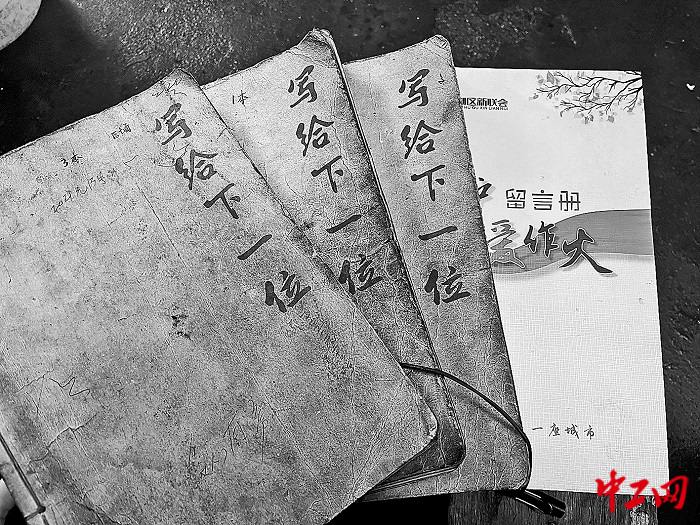 写给下一位
3本
写给下一位
1本
写给下一位
区新联会
留言册
爱作火
一座城市
中工网